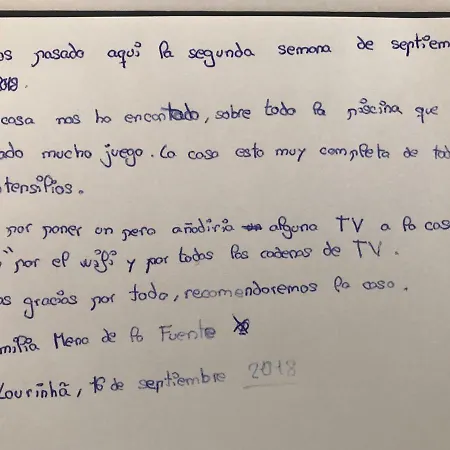 os pasado aquí la segunda semana de septiem
2018.
casa nos ha encantado, sobre todo la piscina que
ado mucho juego. La casa esta muy completa de tod
tensilios.
por poner un pero añadiria alguna TV a la cas
" por el wifi y por todas las cadenas de TV.
as gracias por todo, recomendaremos la casa.
milia Meno de la Fuente
Lourinhã, 16 de septiembre 2018